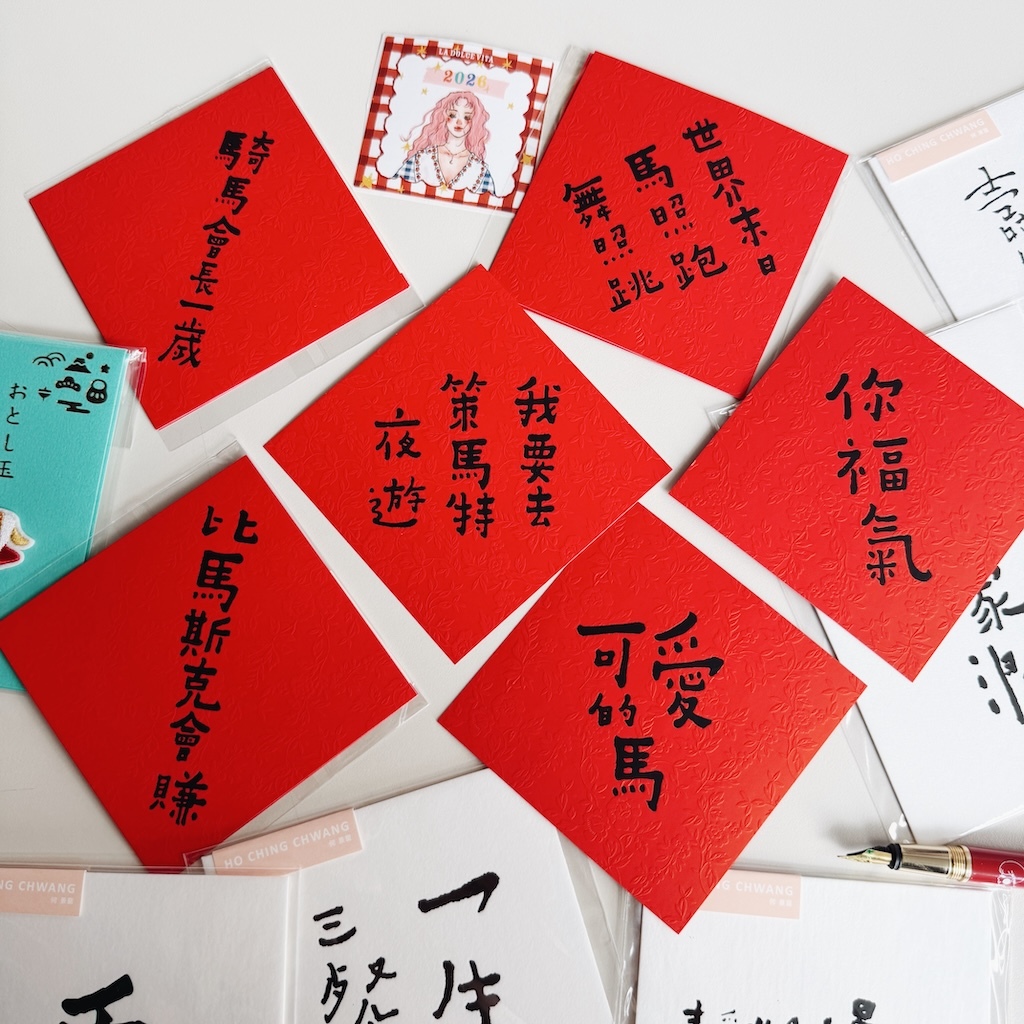 LA DOLCE VITA
2026
騎馬會長一歲
世界末日
馬照跑
舞照跳
HO CHING CHWANG
你福氣
我要去
策馬特
夜遊
おとし玉
比馬斯克會賺
愛
可的馬
家潤
HO CHING CHWANG
NG CHWANG
一生
三發
CHWANG